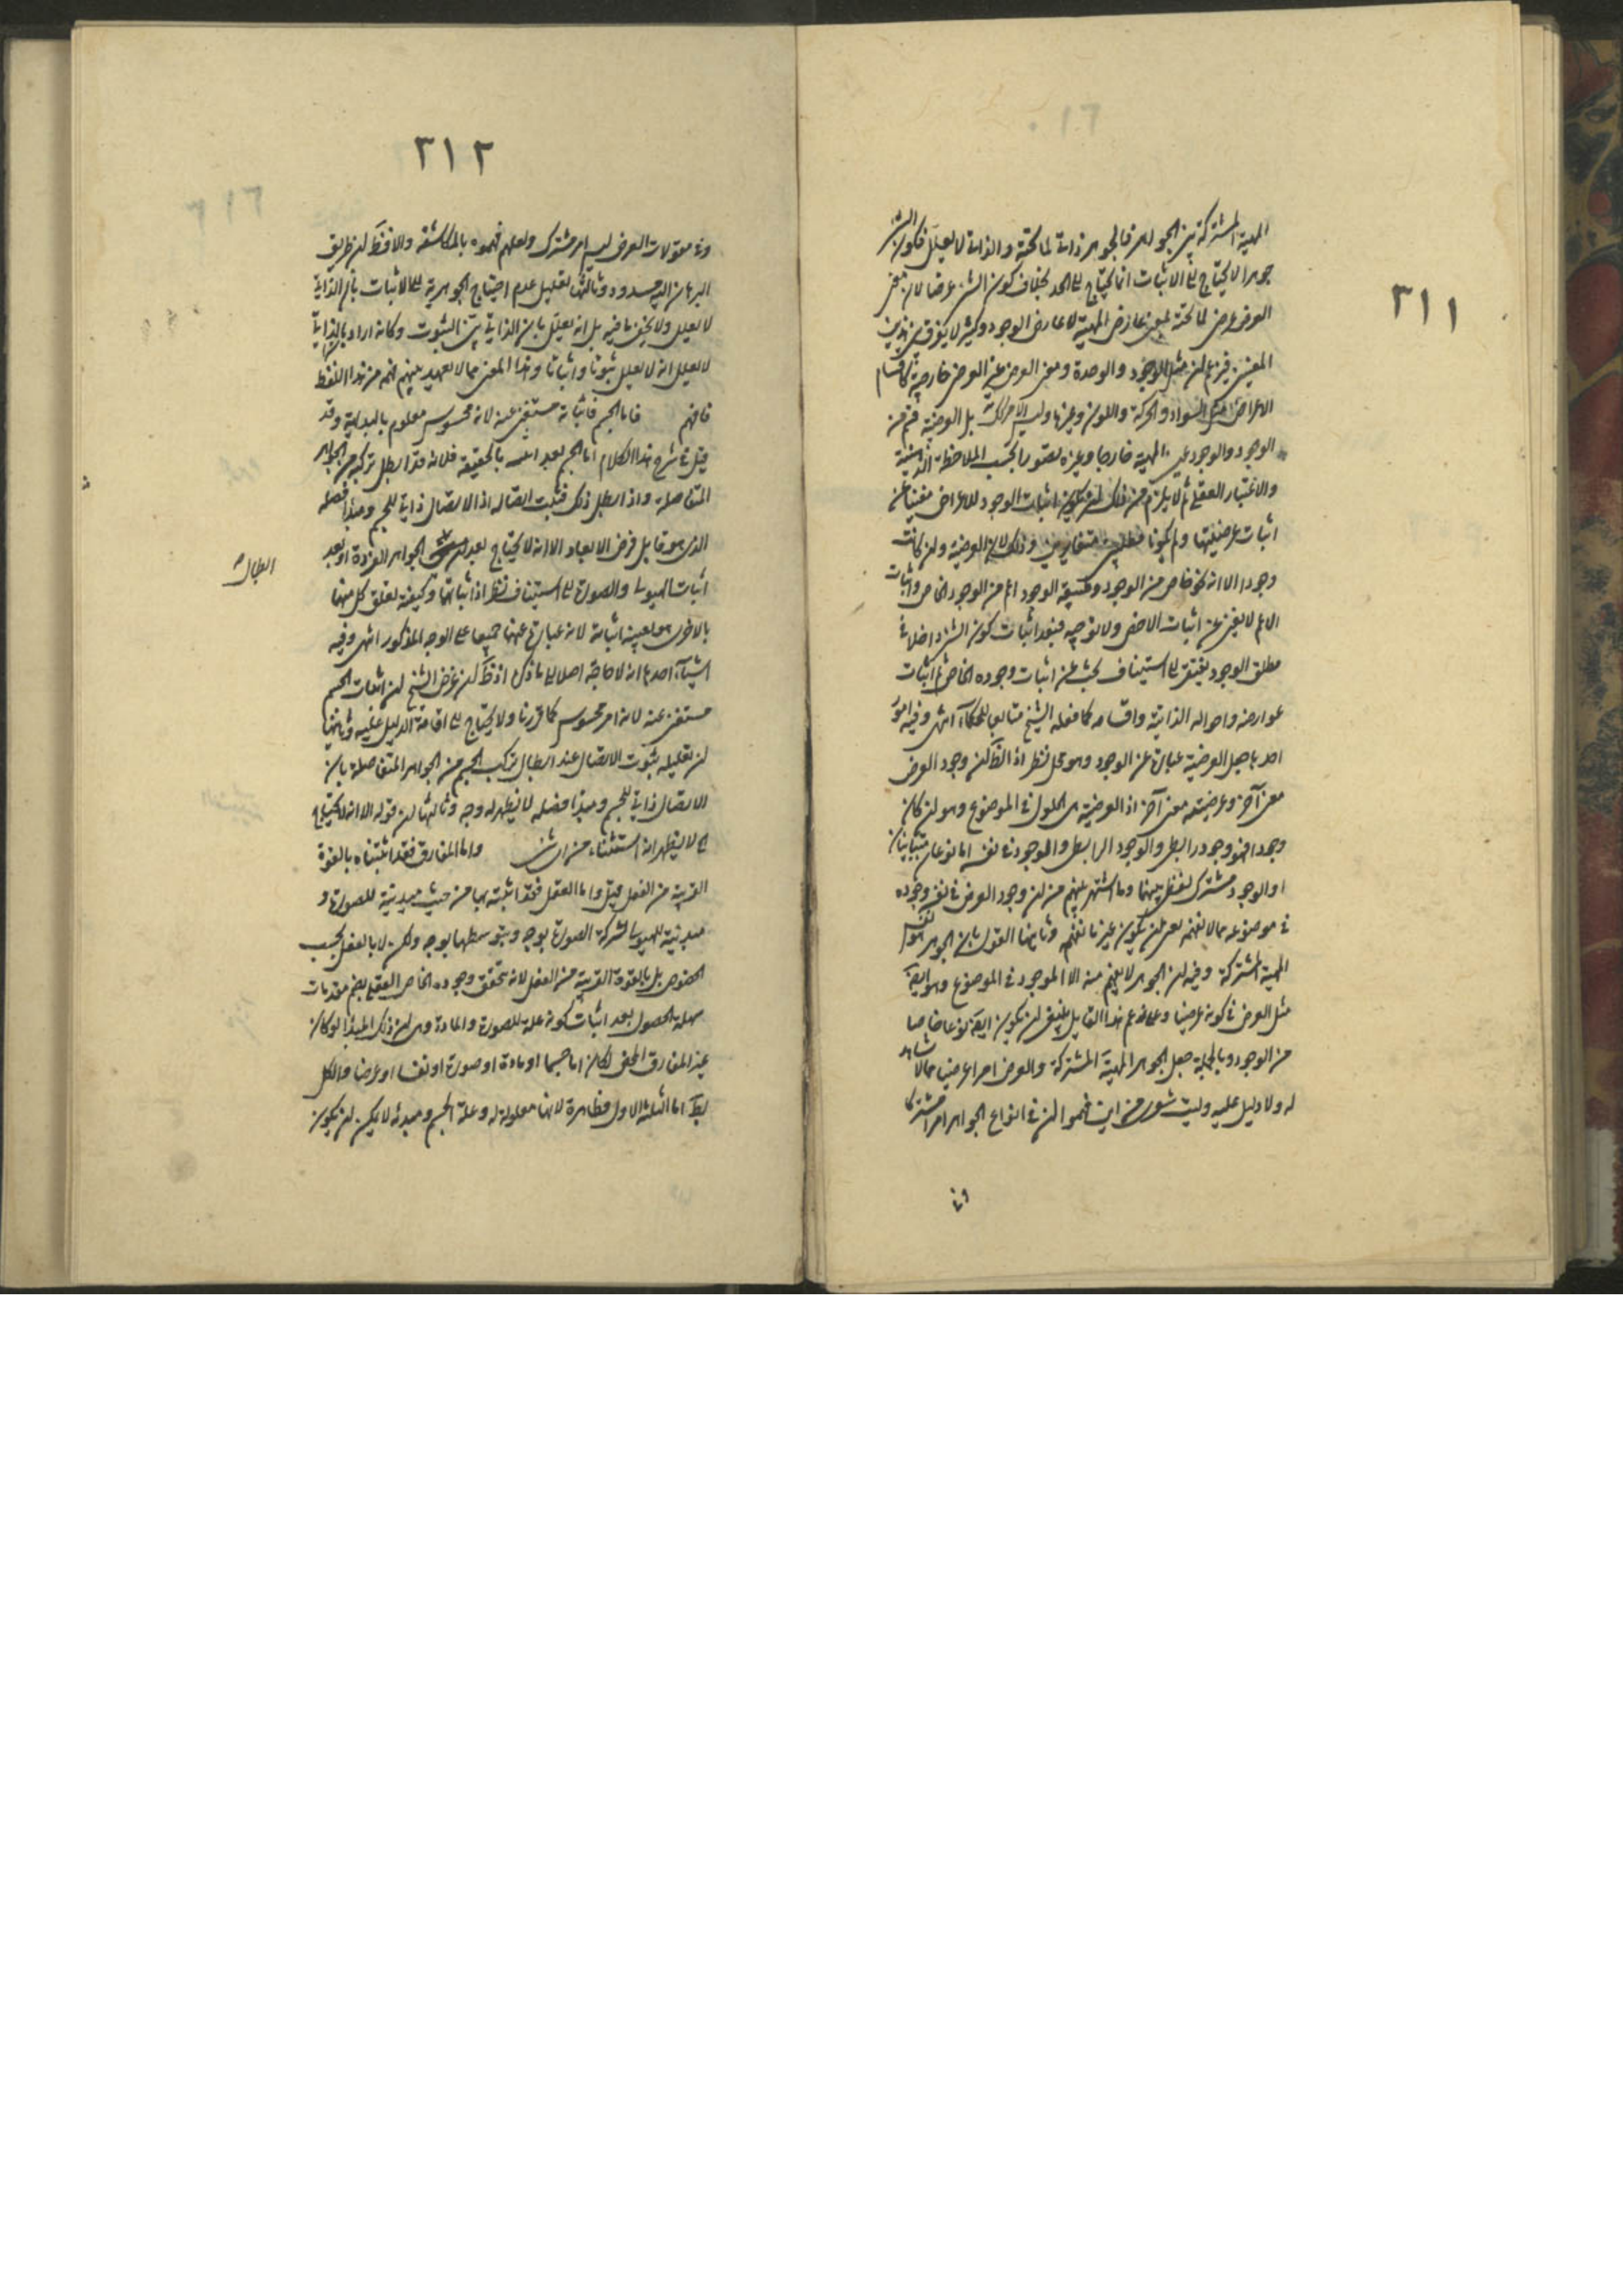 ٣١١
المهية المشتركة بين الجواهر فالجوهر ذاتي لما تحته والذاتي لا يعلل فكون الشئ
جوهرا لا يحتاج الى الاثبات انما يحتاج الى الحد بخلاف كون الشئ عرضا لان معنى
العرض عرضى لما تحته بمعنى عارض المهية لا عارض الوجود وكثير لا يفرق بين هذين
المعنيين فيزعم ان مثل الوجود والوحدة ومعنى العرض عند العرض خارجية كاقسام
الاعراض مثل السواد والحركة واللون وغيرها وليس الامر كذلك بل العرضية قسم من
الوجود والوجود عين المهية خارجا وغيره تصورا بحسب الملاحظة الذهنية
والاعتبار العقلى ثم لا يلزم من ذلك ان يكون اثبات الوجود للاعراض مغنيا عن
اثبات عرضيتها ولم يكونا مطلبين متغايرين وذلك لان العرضية وان كانت
وجودا الا انه نحو خاص من الوجود وحقيقة الوجود اعم من الوجود الخاص واثبات
الاعم لا يغنى عن اثبات الاخص ولا يوجبه فبعد اثبات كون الشئ داخلا فى
مطلق الوجود يفتقر الى استيناف بحث عن اثبات وجوده الخاص ثم اثبات
عوارضه واحواله الذاتية واقسامه كما فعله الشيخ متابعا للحكماء انتهى وفيه امور
احدها جعل العرضية عبارة عن الوجود وهو محل نظر اذ الظ كون وجود العرض
معنى آخر وعرضيته معنى آخر اذ العرضية هى الحلول فى الموضوع وهو ان كان
وجودا فهو وجود رابطى والوجود الرابطى والموجود فى نفسه اما نوعان متباينان
او الوجود مشترك لفظى بينهما وما اشتهر بينهم من ان وجود العرض فى نفسه وجوده
فى موضوعه مما لا نفهمه لعل ان يكون غيرنا يفهم وثانيها القول بان الجوهر نفس
المهية المشتركة وفيه ان الجوهر لا يفهم منه الا الموجود لا فى الموضوع وهو ايضا
مثل العرض فى كونه عرضيا وعلى زعم هذا القايل ينبغى ان يكون ايضا نوعا خاصا
من الوجود وبالجملة جعل الجوهر المهية المشتركة والعرض امرا عرضيا مما لا شاهد
له ولا دليل عليه وليت شعرى من اين فهموا ان فى انواع الجواهر امرا مشتركا
وفى
٣١٢
وفى مقولات العرض ليس امر مشترك ولعلهم فهموه بالمكاشفة والا فظ ان طريق
البرهان اليه مسدود وثالثها تعليل عدم احتياج الجوهرية الى الاثبات بان الذاتى
لا يعلل ولا يخفى ما فيه بل انه يعلل بان الذاتى بين الثبوت وكانه اراد بالذاتى
لا يعلل انه لا يعلل ثبوتا واثباتا وهذا المعنى مما لا يعهد بينهم فهمه من هذا اللفظ
فافهم فاما الجسم فاثباته مستغنى عنه لانه محسوس معلوم بالبداهة وقد
قيل فى شرح هذا الكلام اما الجسم بعد اسه بالحقيقة فلانه قد ابطل تركبه من الجواهر
المتفاصلة واذا بطل ذلك فثبت اتصاله اذ الاتصال ذاتى للجسم ومبدأ فصله
الذى هو قابل فرض الابعاد الا انه لا يحتاج بعد الجواهر الفردة او بعد
ابطال
اثبات الهيولى والصورة الى استيناف نظر اذ اثباتهما وكيفية تعلق كل منهما
بالاخرى هو بعينه اثباته لانه عبارة عنهما جميعا على الوجه المذكور انتهى وفيه
اشياء احدها انه لا حاجة اصلا الى ما ذكره اذ ظ ان غرض الشيخ ان اثبات الجسم
مستغنى عنه لانه امر محسوس كما قررنا ولا يحتاج الى اقامة الدليل عليه وثانيها
ان تعليله ثبوت الاتصال عند ابطال تركب الجسم من الجواهر المتفاصلة بان
الاتصال ذاتى للجسم ومبدأ فصله لا يظهر له وجه وثالثها ان قوله الا انه لا يحتاج
الى لا يظهر انه استثناء من اى شئ واما المفارق فقد اثبتناه بالقوة
القريبة من الفعل قيل واما العقل فقد اثبته بها من حيث مبدئيته للصورة و
مبدئيته للهيولى بشركة الصورة بوجه وبتوسطها بوجه ولكن لا بالفعل بحسب
الخصوص بل بالقوة القريبة من الفعل لانه يتحقق وجوده الخاص العقلى بضم مقدمات
سهلة الحصول بعد اثبات كونه علة للصورة والمادة وهى ان ذلك المبدأ لو كان
غير المفارق المحض لكان اما جسما او مادة او صورة او نفسا او عرضا والكل
بط اما الثلثة الاول فظاهرة لانها معلولة له وعلة الجسم ومبدئه لا يمكن ان يكون